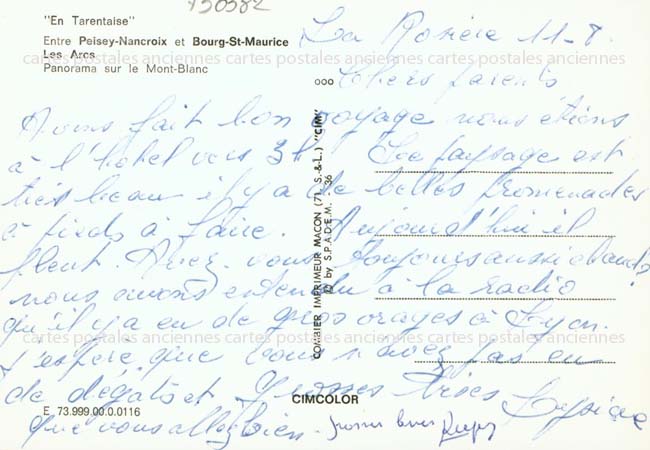 130382
"En Tarentaise"
Entre Peisey-Nancroix et Bourg-St-Maurice
Les Arcs
Panorama sur le Mont-Blanc
La Rosière 11-8.
Chers parents
Avons fait bon voyage nous étions
à l'hôtel vers 3h Le paysage est
très beau il y a de belles promenades
à pieds à faire. Aujourd'hui il
pleut Avez vous toujours aussi chaud?
nous avons entendu à la radio
qu'il y a eu de gros orages à Lyon.
J'espère que vous n'avez pas eu
de dégats et
que vous allez bien. Grosses bises
grosses bises
cartes postales anciennes cartes postales anciennes cartes postales anciennes
cartes postales anciennes cartes postales anciennes cartes postales anciennes
cartes postales anciennes cartes postales anciennes cartes postales anciennes
COMBIER IMPRIMEUR MACON (71, S.-&-L.) "CIM"
© by S.P.A.D.E.M. 36
CIMCOLOR
E 73.999.00.0.0116